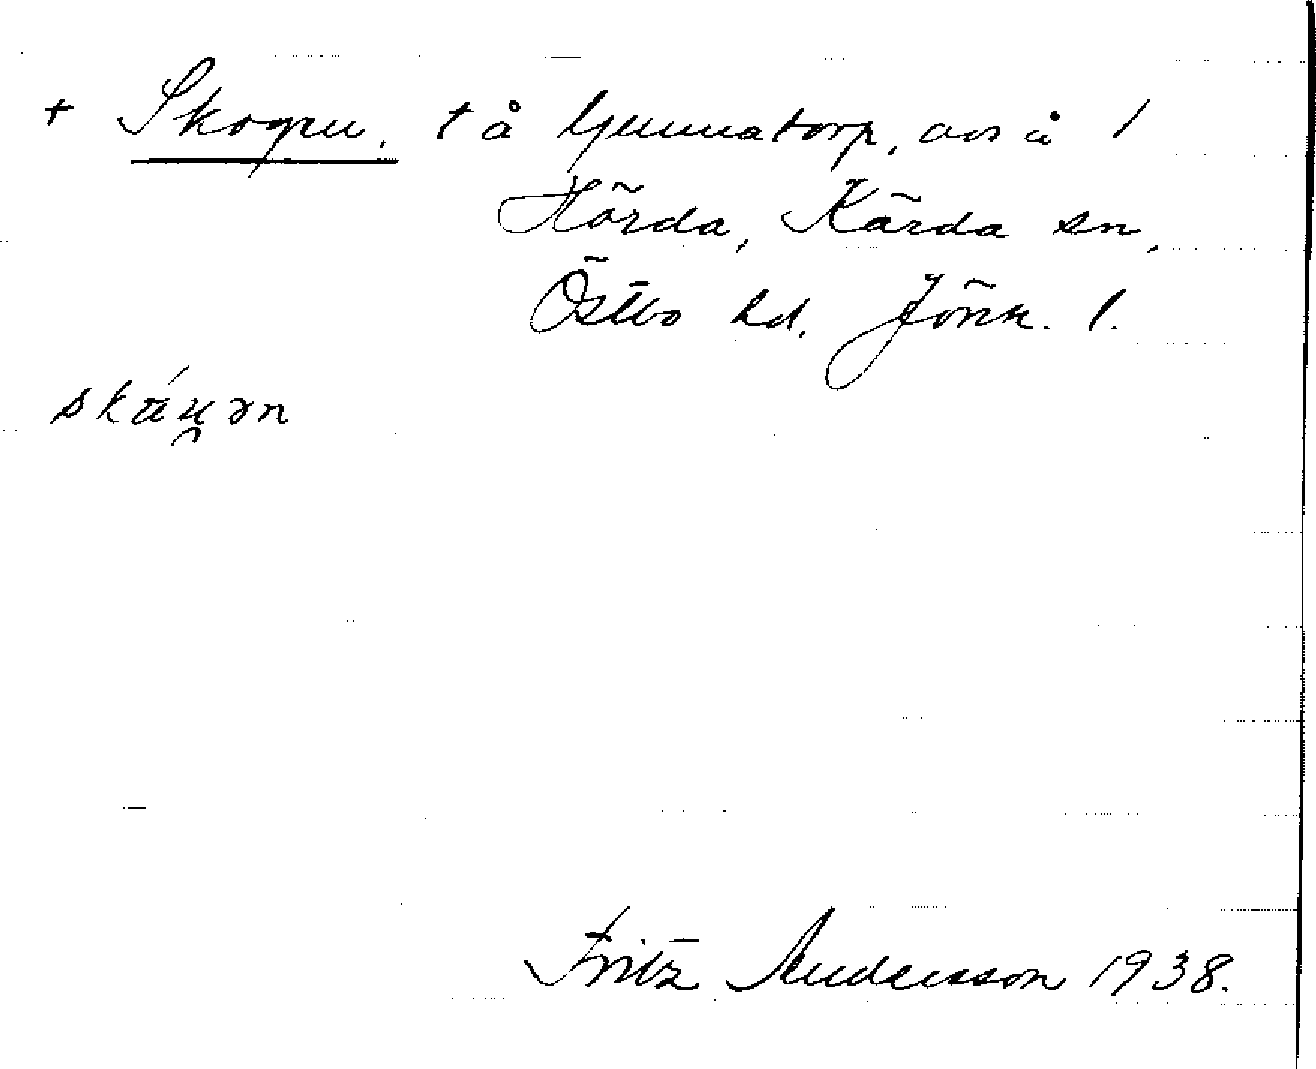 + Skogen. t å Gunnatorp, avs å 1
Hörda, Kärda sn,
Östbo hd. Jönk. l.
Fritz Andersson 1938.